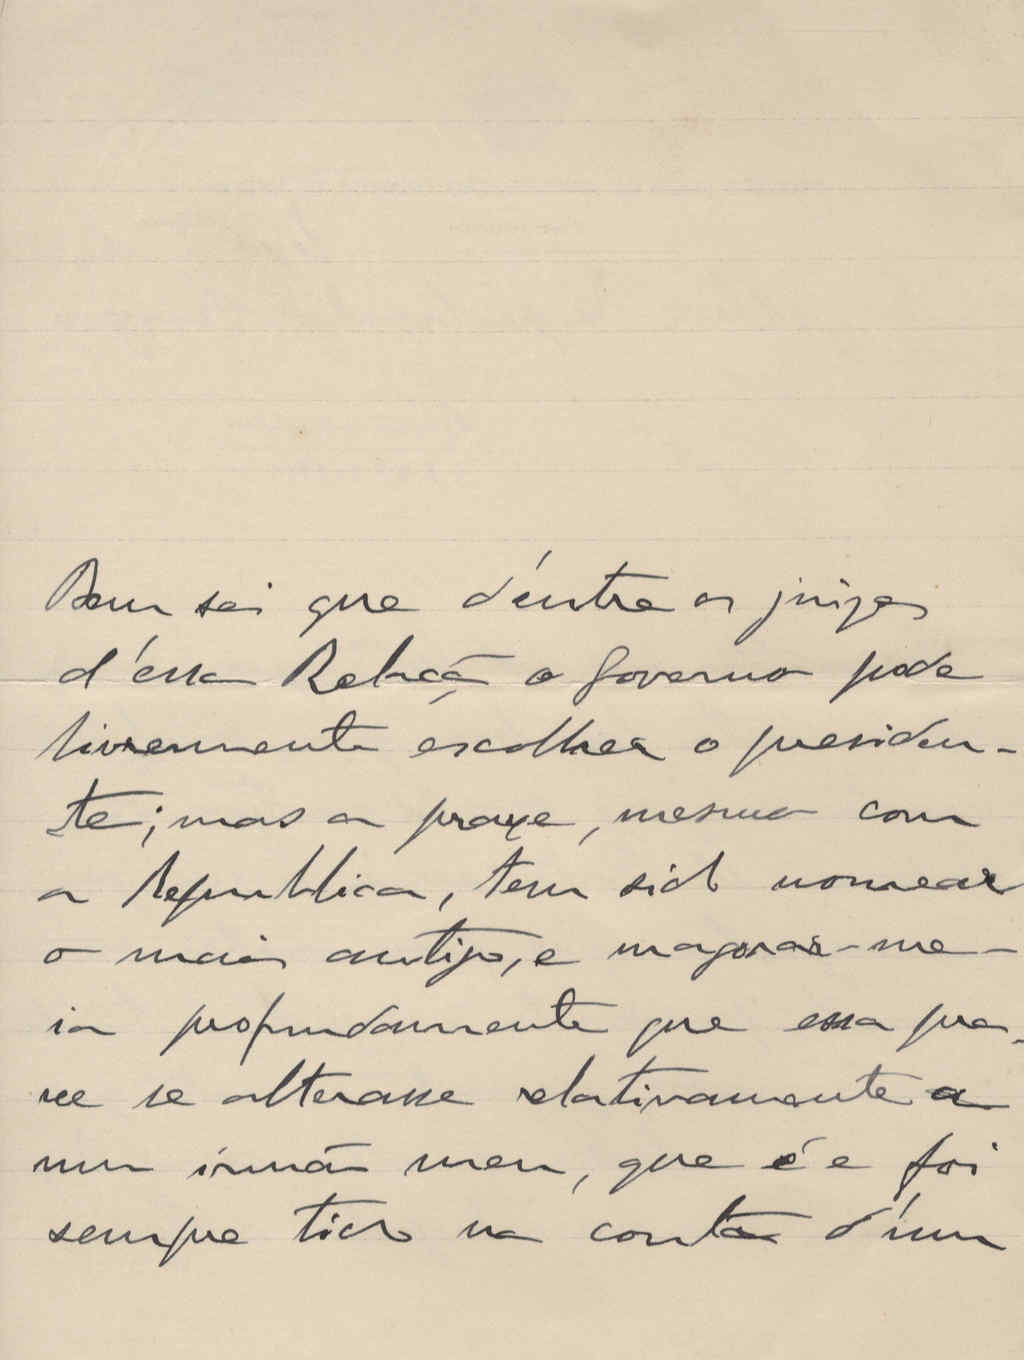 Bem sei que d'entre os juizes
d'essa Relação o Governo pode
livremente escolher o presiden-
te; mas a praxe, mesmo com
a Republica, tem sido nomear
o mais antigo, e magoar-me-
ia profundamente que essa pra-
xe se alterasse relativamente a
um irmão meu, que é e foi
sempre tido na conta d'um